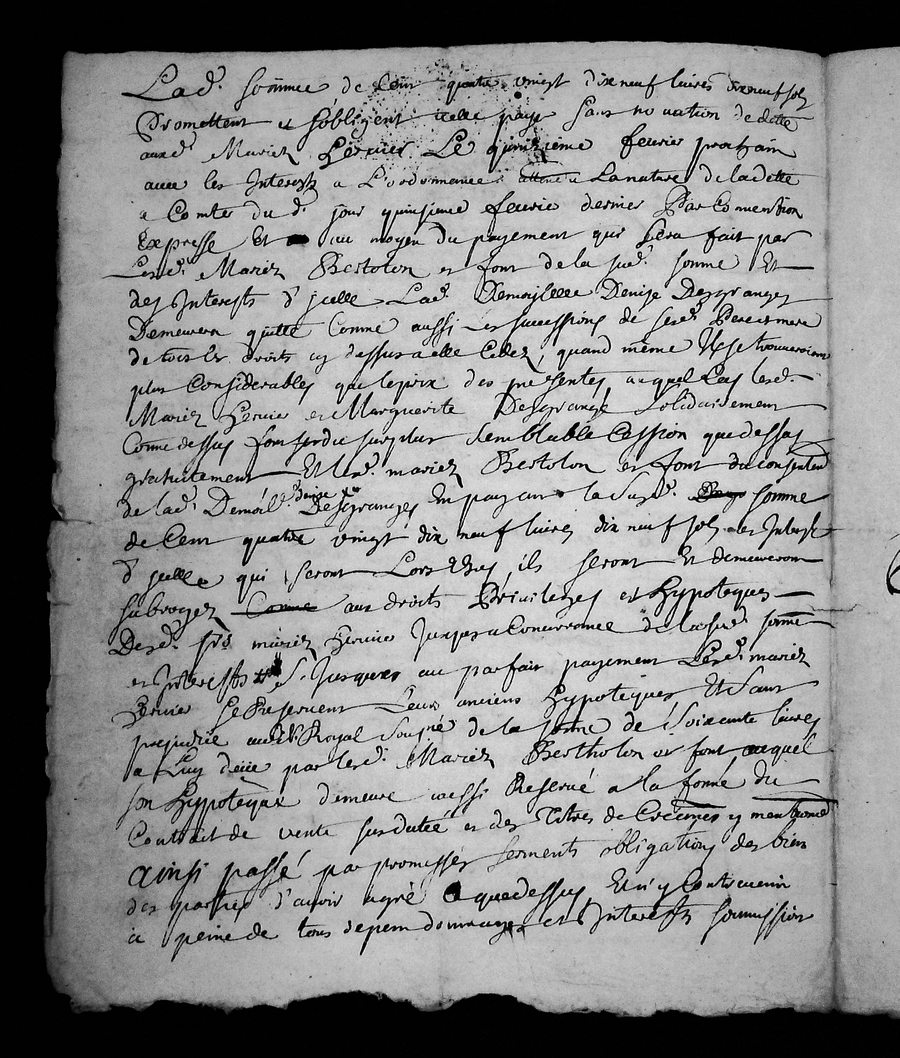 Lad. somme de Cent quatre vingt dix neuf livres dix neuf sols
Promettent et sobligent icelle paye sans novation de dette
auxd. Mariez Servier Le quinzieme fevrier prochain
avec les Interests a L'ordonnance La nature de la dette
a Compter du d. jour quinsieme fevrier dernier Par Convention
Expresse Et au moyen du payement qui sera fait par
Lesd. Mariez Bertolon et font de la sud. somme Et
des Interests d'jcelle Lad. Demoiselle Denise Desgranges
Demeurera quitte Comme aussi Les successions de sesd. Pere et mere
de tous les droits cy dessus a elle Cedez, quand même Il se trouveroient
plus Considerables que le prix des presentes, auquel Cas lesd.
Mariez Servier et Marguerite Desgrange Solidairement
Comme dessus font du surplus semblable Cession que dessus
gratuitement Et lesd. mariez Bertolon et font du consentem
de lad. Demoil.e Denise Desgranges En payant la susd. somme
de Cent quatre vingt dix neuf livres dix neuf sols et Interests
d'jcelle qui seront Lors Deus ils seront Et demeureront
subrogez Comme aux droits Privileges et Hypoteques
Desd. mariez Servier Jusques a Concurrance de la sud. somme
et Interests Jusques au parfait payement Lesd. mariez
Servier se Reservent Leurs anciens Hypoteques Et Sans
prejudice aud. Sr. Royal Sougné de la somme de Soixante livres
a Luy deüe par lesd. Mariez Bertholon et font auquel
son Hypoteque demeure aussi Reservé a la forme du
Contrait de vente susdatée et des Titres de Creances y mentionné
ainsi passé par promesses serments obligations des biens
des parties d'avoir agrée que dessus Et n'y Contrevenir
a peine de tous depens dommages et Interests soumission